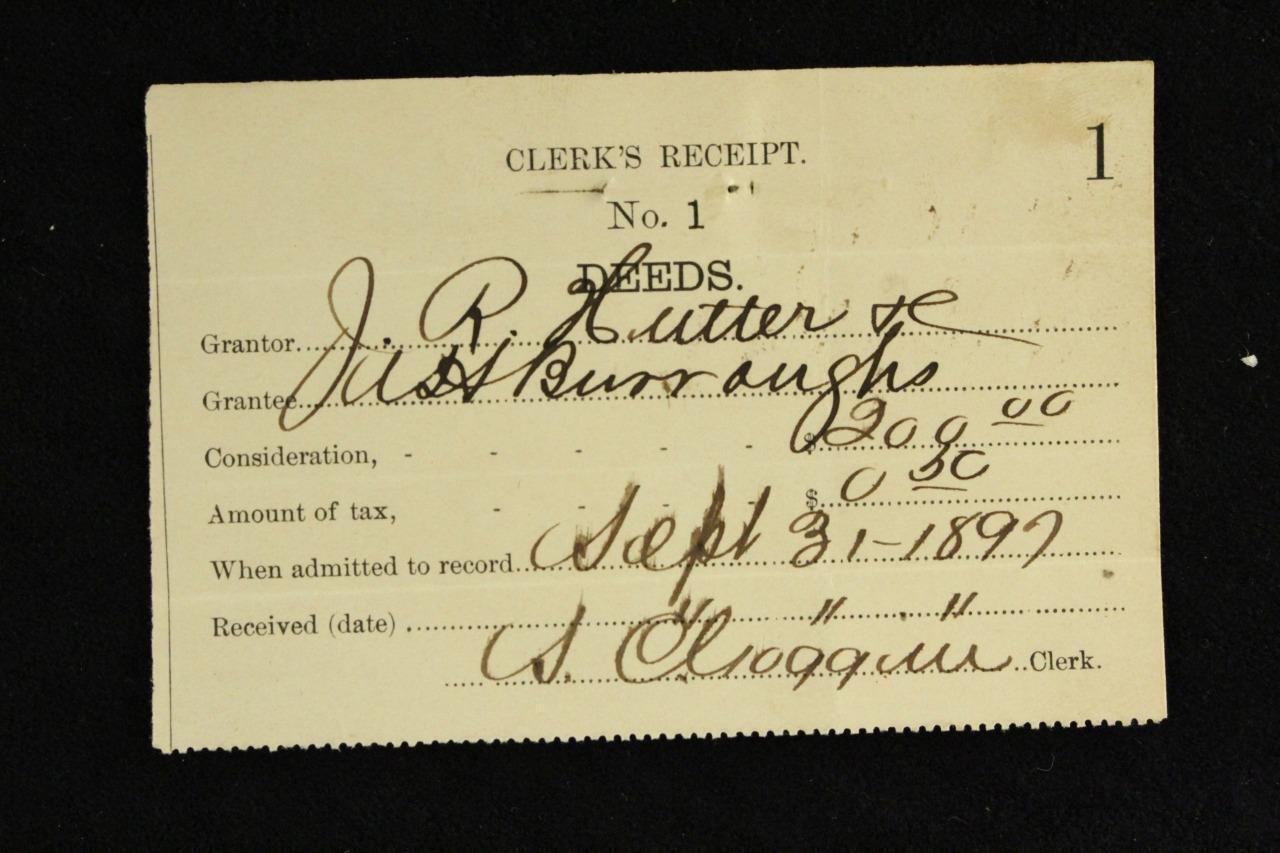 CLERK'S RECEIPT.
1
No. 1
DEEDS.
Grantor J. R. Hutter &c
Grantee Jas H Burroughs
Consideration, - - - - - $ 200 00
Amount of tax, - - - - $ 0 50
When admitted to record Sept 31-1897
Received (date) " " "
S. Goggin Clerk.